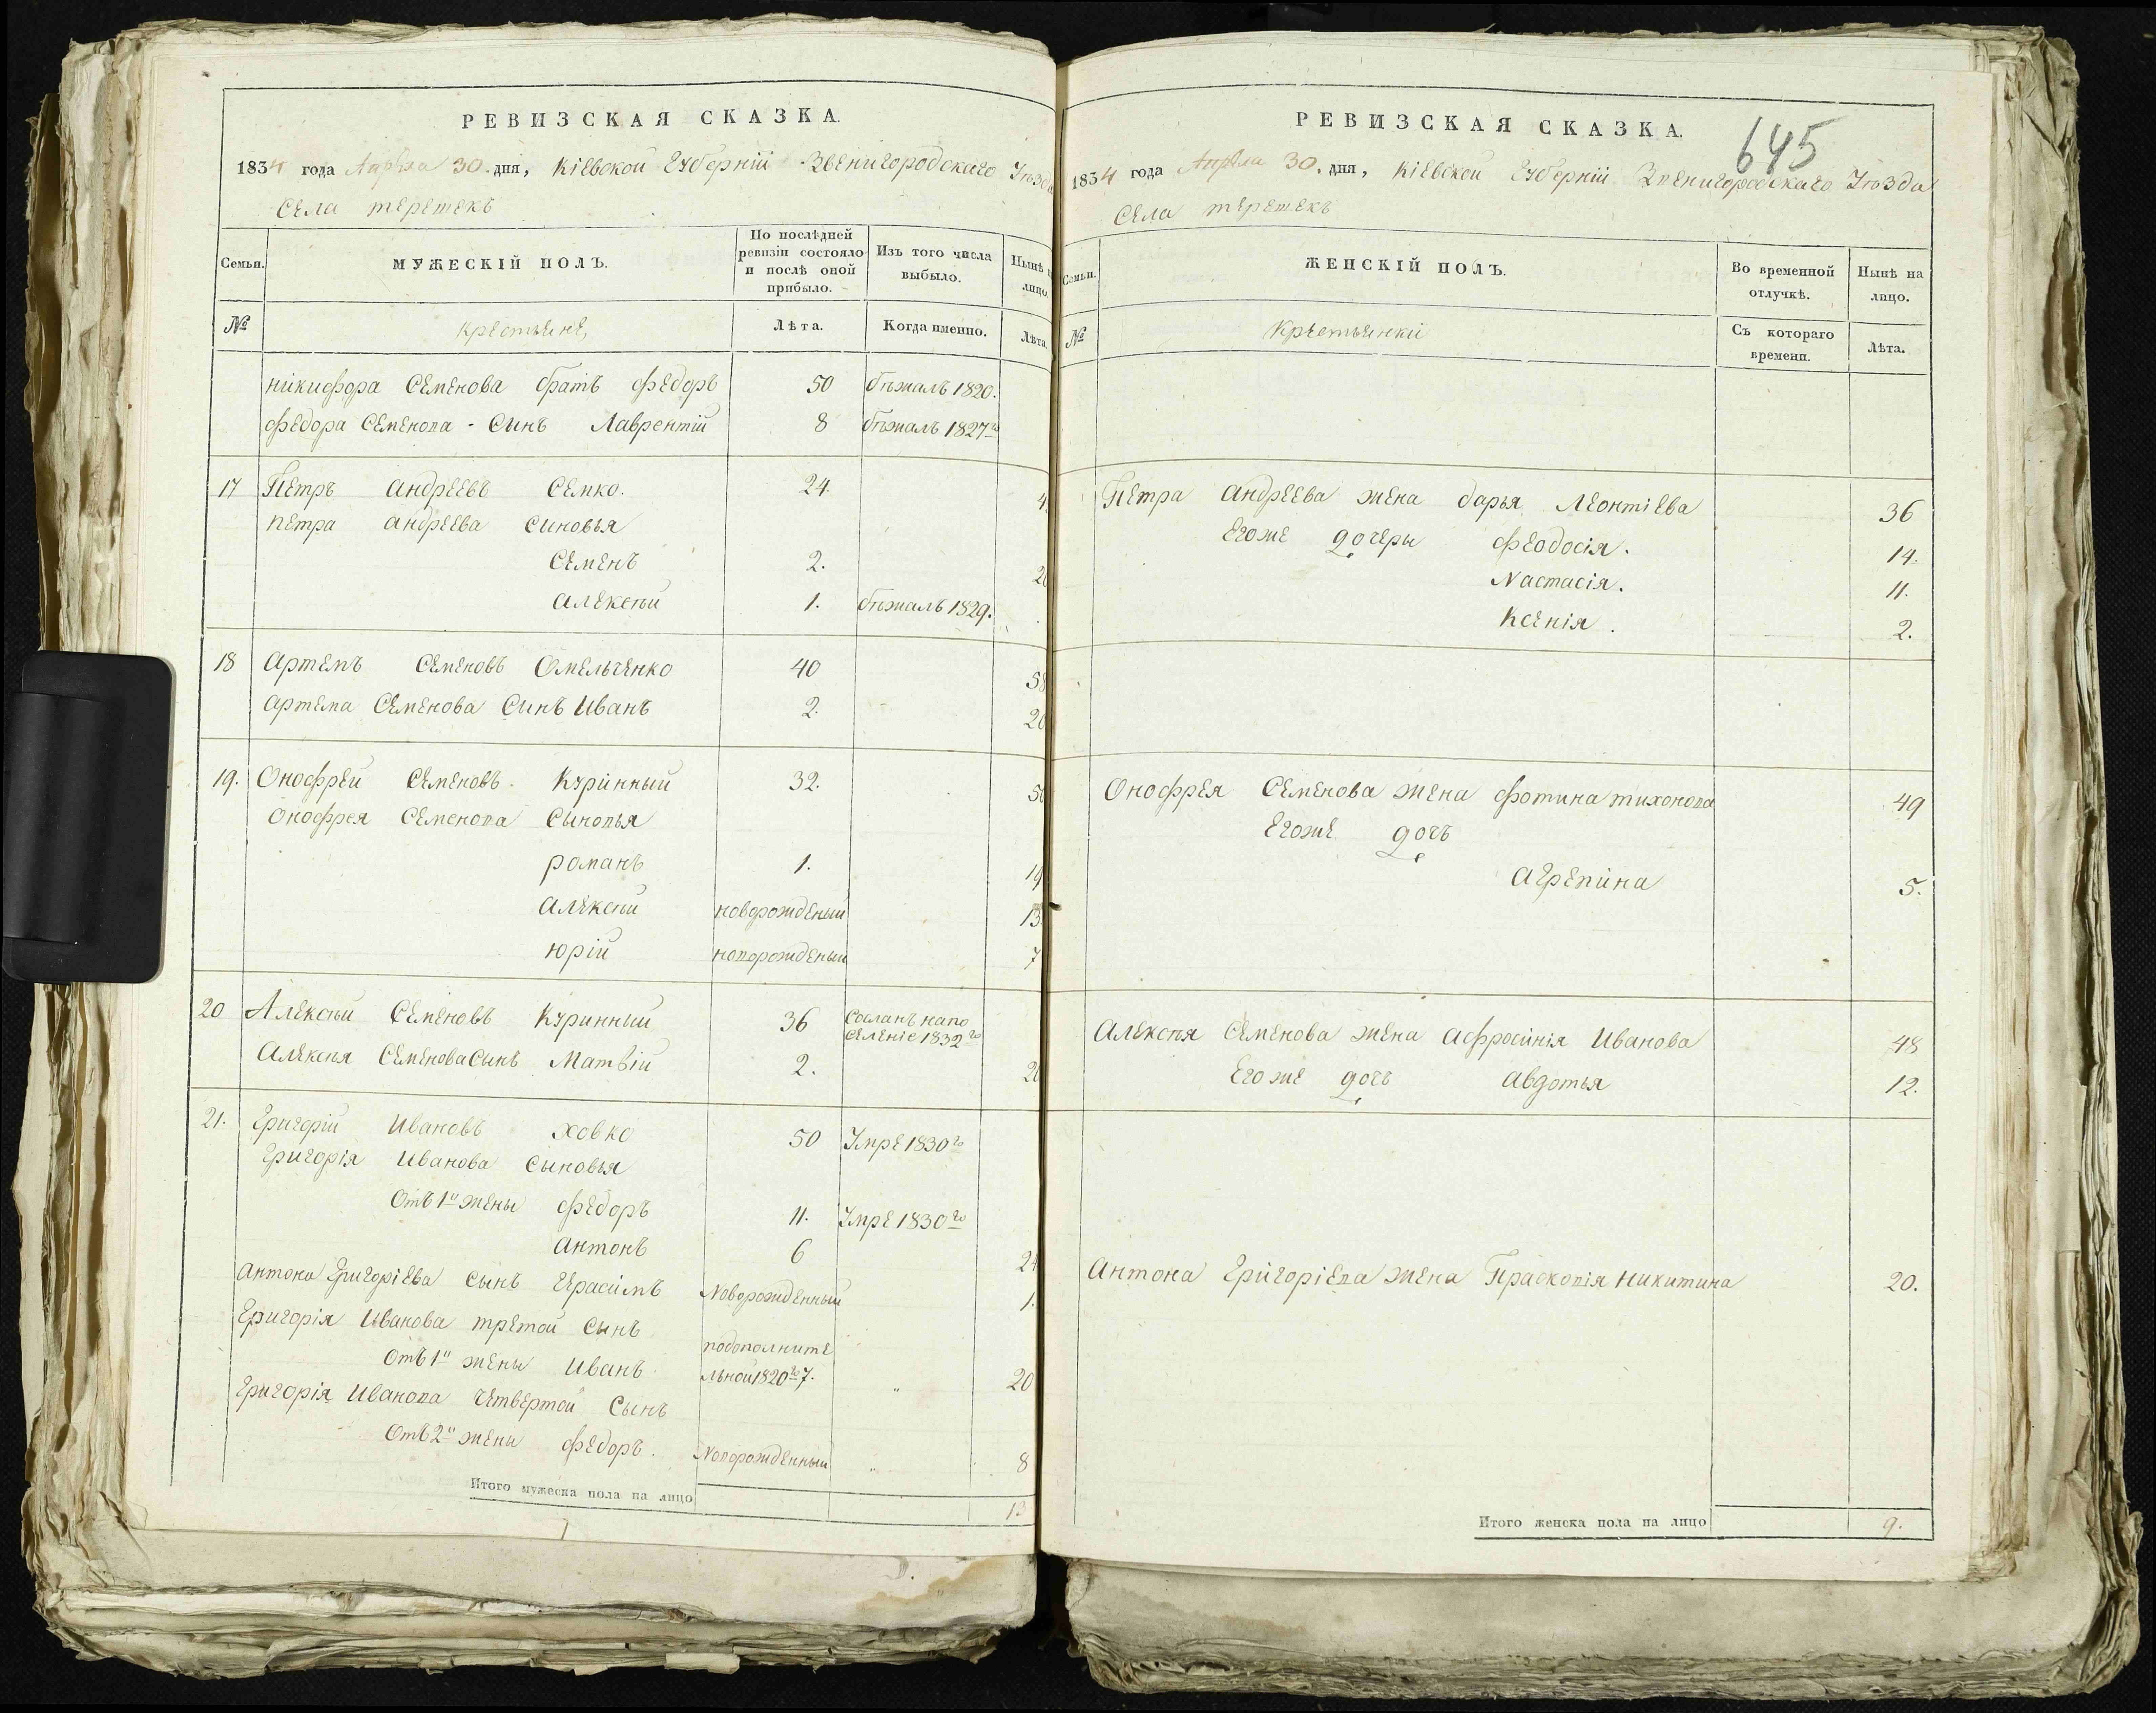 РЕВИЗСКАЯ СКАЗКА.
1834 года Апрѣла 30. дня, Кіевской Губерніи Звенигородскаго Уѣзда
Села терешекъ
Семьи.
МУЖЕСКІЙ ПОЛЪ.
По послѣдней ревизіи состояло и послѣ оной прибыло.
Изъ того числа выбыло.
Нынѣ на лицо.
№
крестьяне,
Лѣта.
Когда именно.
Лѣта.
никифора Семенова братъ федоръ 50 бѣжалъ 1820.
федора Семенова - Сынъ Лаврентій 8 бѣжалъ 1827го
17 Петръ андреевъ Семко. 24. 4
петра андреева синовья
Семенъ 2. 20
алексѣй 1. бѣжалъ 1829.
18 артемъ Семеновъ Омельченко 40 58
артема Семенова Синъ Иванъ 2. 20
19. Онофрей Семеновъ Курінный 32. 50
Онофрея Семенова Сыновья
романъ 1. 19
алексѣй новорожденый 13.
юрій новорожденый 7
20 Алексѣй Семеновъ Куринный 36 Сосланъ напо
селеніе 1832го
алексѣя Семенова Сынъ Матвій 2. 20
21. григорій Ивановъ ховко 50 Умре 1830го
григорія Иванова Сыновья
Отъ 1й жены федоръ 11. Умре 1830го
антонъ 6 24
антона григоріева Сынъ герасимъ Новорожденный 1.
григорія Иванова третой Сынъ
Отъ 1й жены Иванъ подополните
льной 1820го 7. " 20
григорія Иванова четвертой Сынъ
Отъ 2й жены федоръ. Новорожденный " 8
Итого мужеска пола на лицо 13
РЕВИЗСКАЯ СКАЗКА.
645
1834 года Апрѣла 30. дня, Кіевской Губерніи Звенигородскаго Уѣзда
Села терешекъ
Семьи.
ЖЕНСКІЙ ПОЛЪ.
Во временной отлучкѣ.
Нынѣ на лицо.
№
Крестьянкіи
Съ котораго времени.
Лѣта.
Петра андреева жена дарья Леонтіева 36
Егоже дочеры феодосія. 14.
Настасія. 11.
Ксенія. 2.
Онофрея Семенова жена фотина тихонова 49
Егоже дочъ
агрепина 5.
алексѣя Семенова жена афросинія Иванова 48
Егоже дочъ авдотья 12.
антона григоріева жена Прасковія никитина 20.
Итого женска пола на лицо 9.